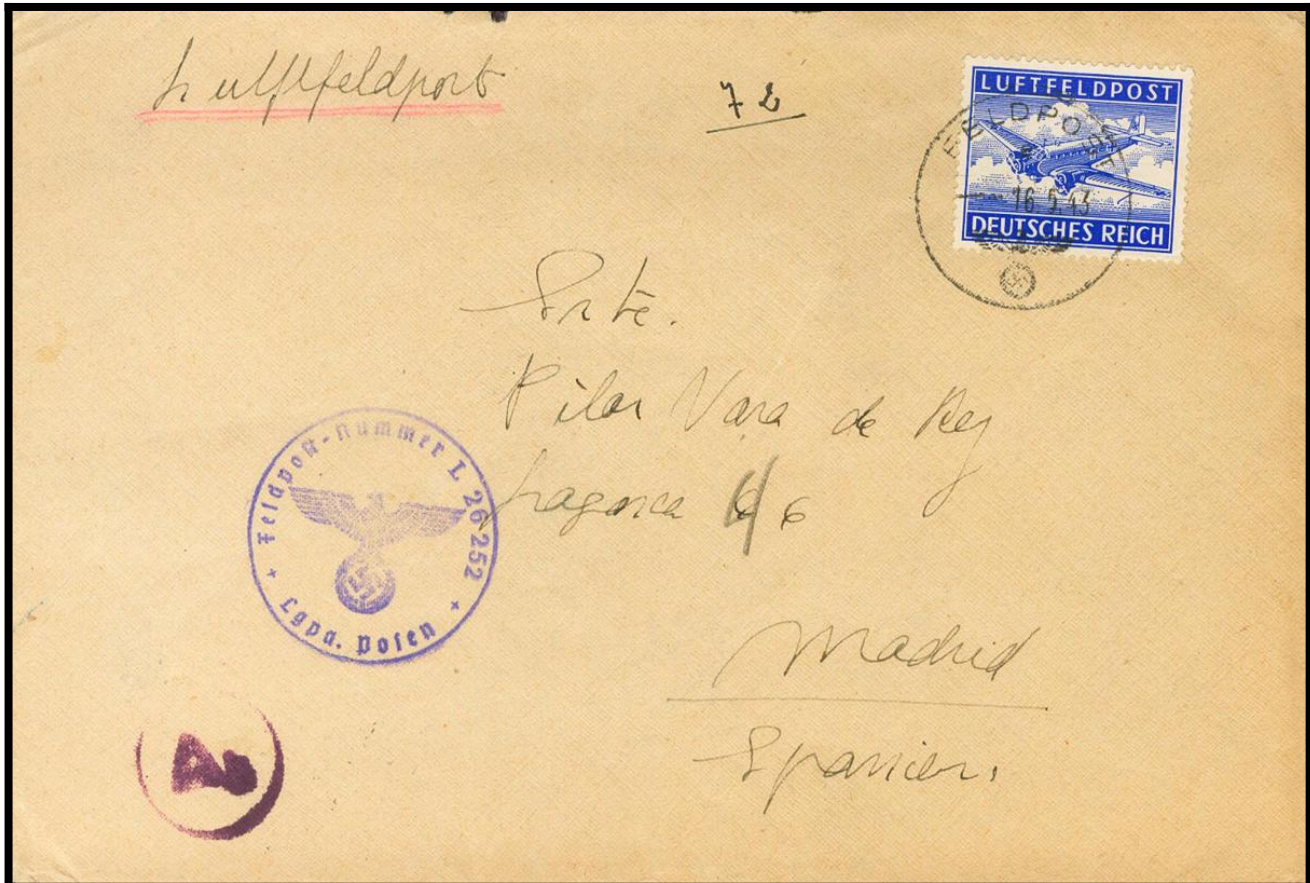 Luftfeldpost
LUFTFELDPOST
DEUTSCHES REICH
FELDPOST
16.5.43
Srta.
Pilar Vara de Rey
6
Madrid
Spanien.
Feldpost-Nummer L 26252
Lgpa. Posen